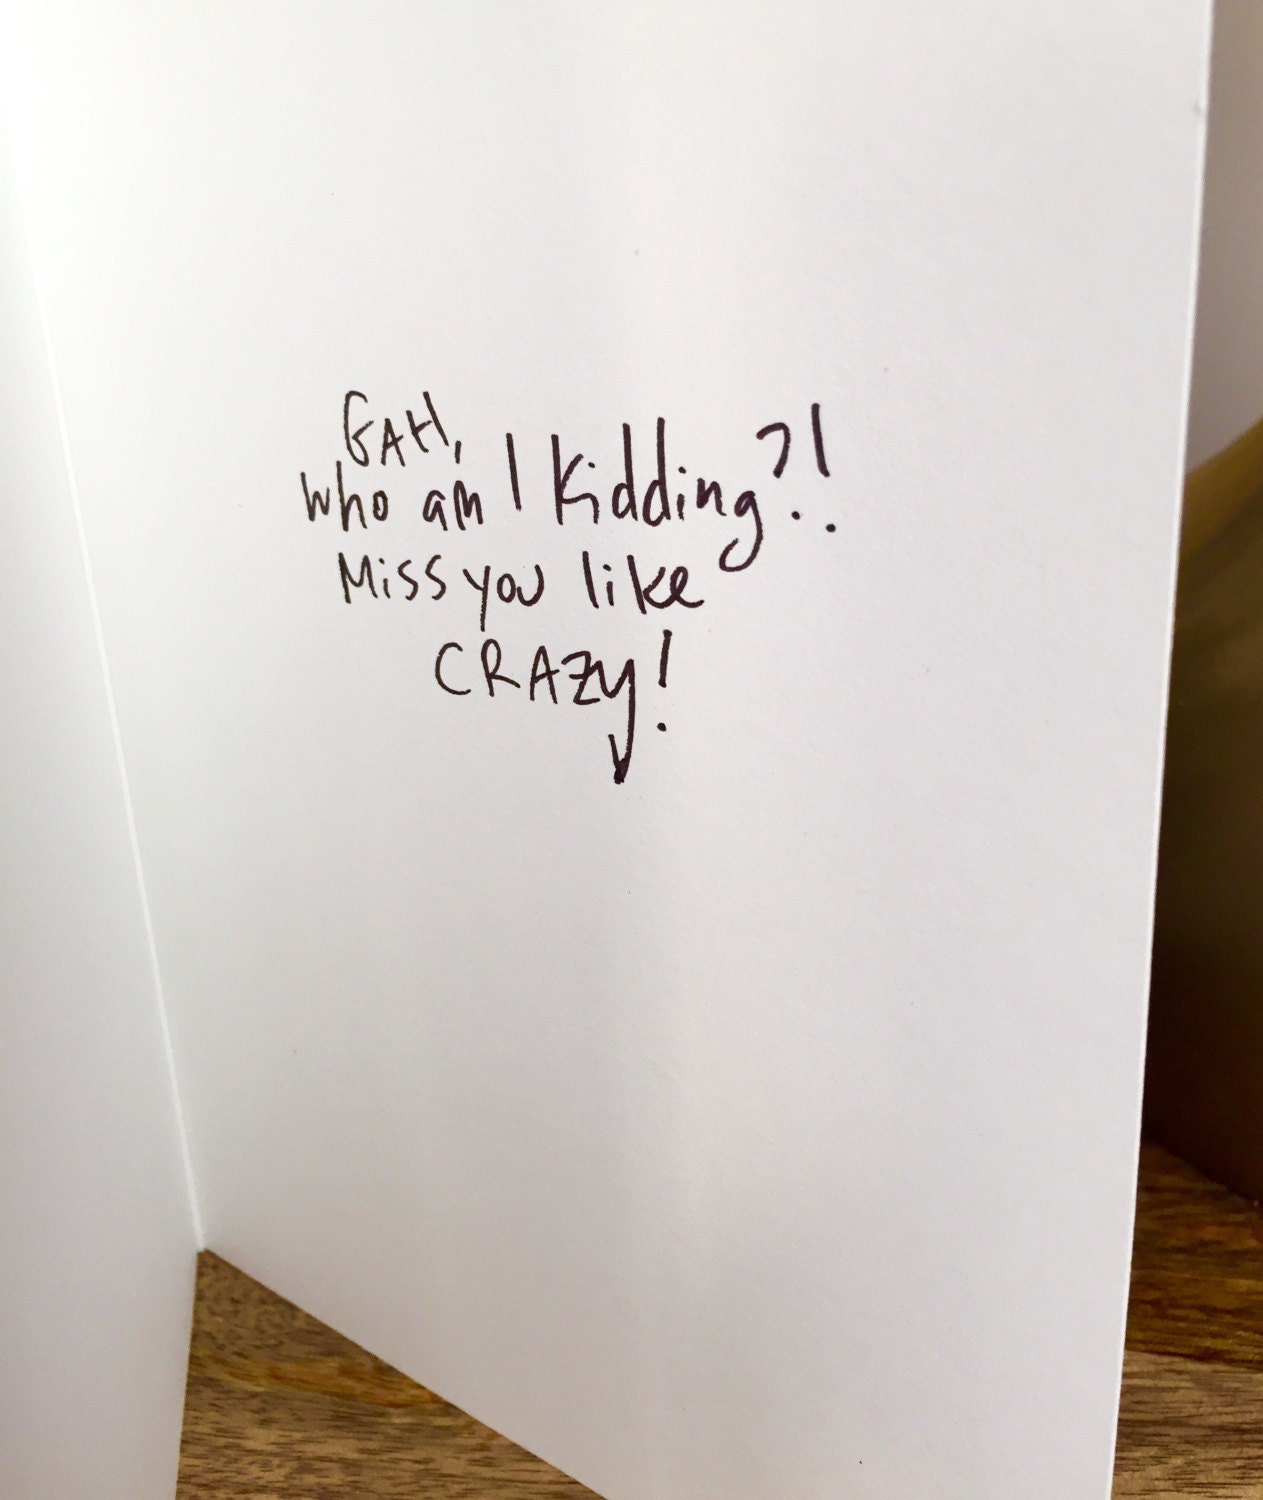 GAH,
who am I kidding?!
Miss you like
CRAZY!